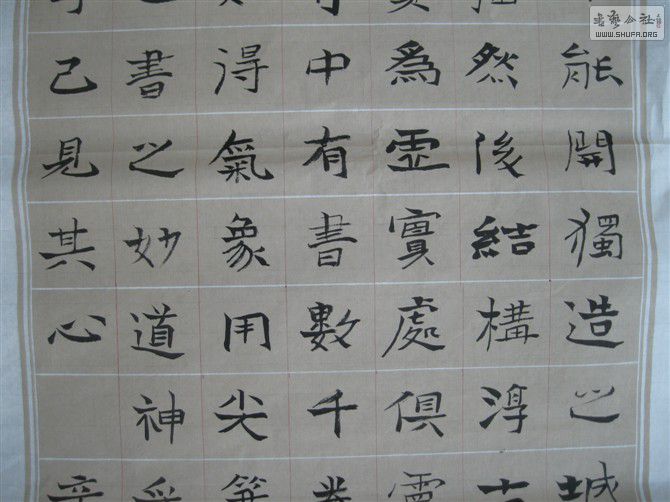 能開獨造之域
然後結構淳古
爲虛實處俱靈
中有書數千卷
得氣象用尖筆
書之妙道神采
己見其心
辛
書藝公社
WWW.SHUFA.ORG